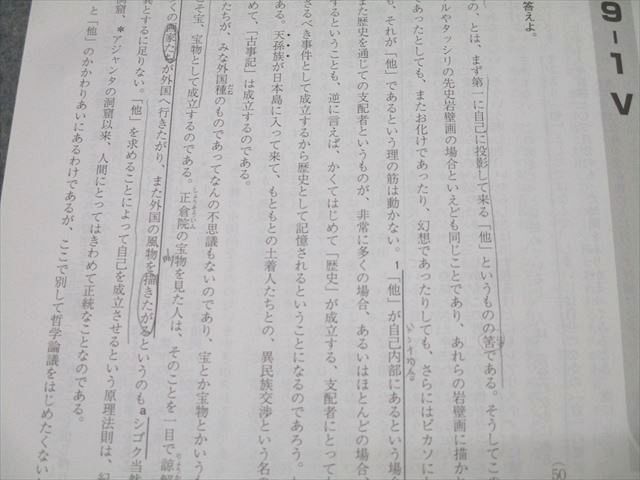 9-1 V
答えよ。
(50
の、とは、まず第一に自己に投影して来る「他」というものの筈である。そうしてこの
ルやタッシリの先史岩壁画の場合といえども同じことであり、あれらの岩壁画に描か
あったとしても、またお化けであったり、幻想であったりしても、さらにはピカソに
も、それが「他」であるという理の筋は動かない。1「他」が自己内部にあるという場合
また歴史を通じての支配者というものが、非常に多くの場合、あるいはほとんどの場合、
するということも、逆に言えば、かくてはじめて「歴史」が成立する、支配者にとって
さるべき事件として成立するから歴史として記憶されるということになるのであろう。
ある。天孫族が日本島に入って来て、もともとの土着人たちとの、異民族交渉という名の
めて、「古事記」は成立するのである。
たちが、みな外国種のものであってなんの不思議もないのであり、宝とか宝物とかいうも
こそ宝、宝物として成立するのである。正倉院の宝物を見た人は、そのことを一目で諒解
くの画家たちが外国へ行きたがり、また外国の風物を描きたがるというのもaシゴク当然
異とするに足りない。「他」を求めることによって自己を成立させるという原理法則は、
洞窟、*アジャンタの洞窟以来、人間にとってはきわめて正統なことなのである。
と「他」のかかわりあいにあるわけであるが、ここで別して哲学論議をはじめたくない